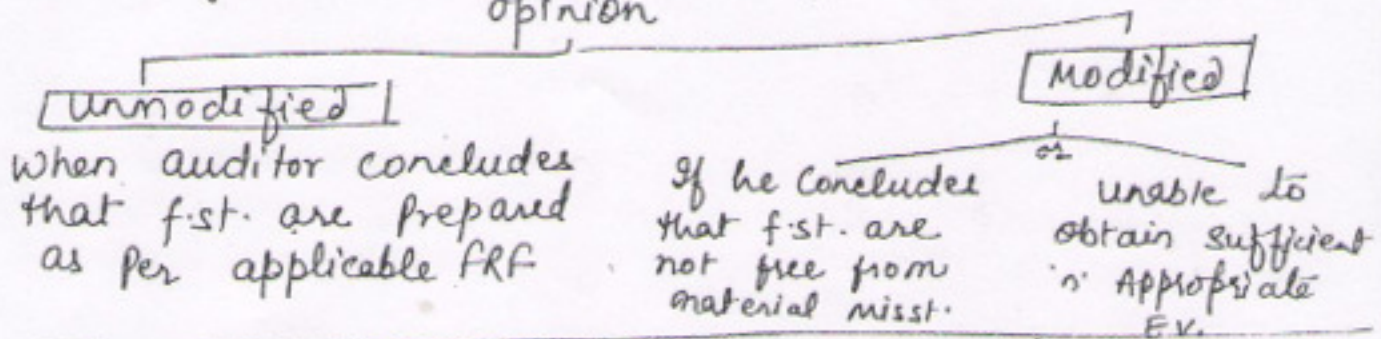 opinion
Unmodified
Modified
When auditor concludes
that f.st. are Prepared
as Per applicable FRF
or
If he Concludes
that f.st. are
not free from
material misst.
unable to
obtain sufficient
'n' Appropriate
Ev.